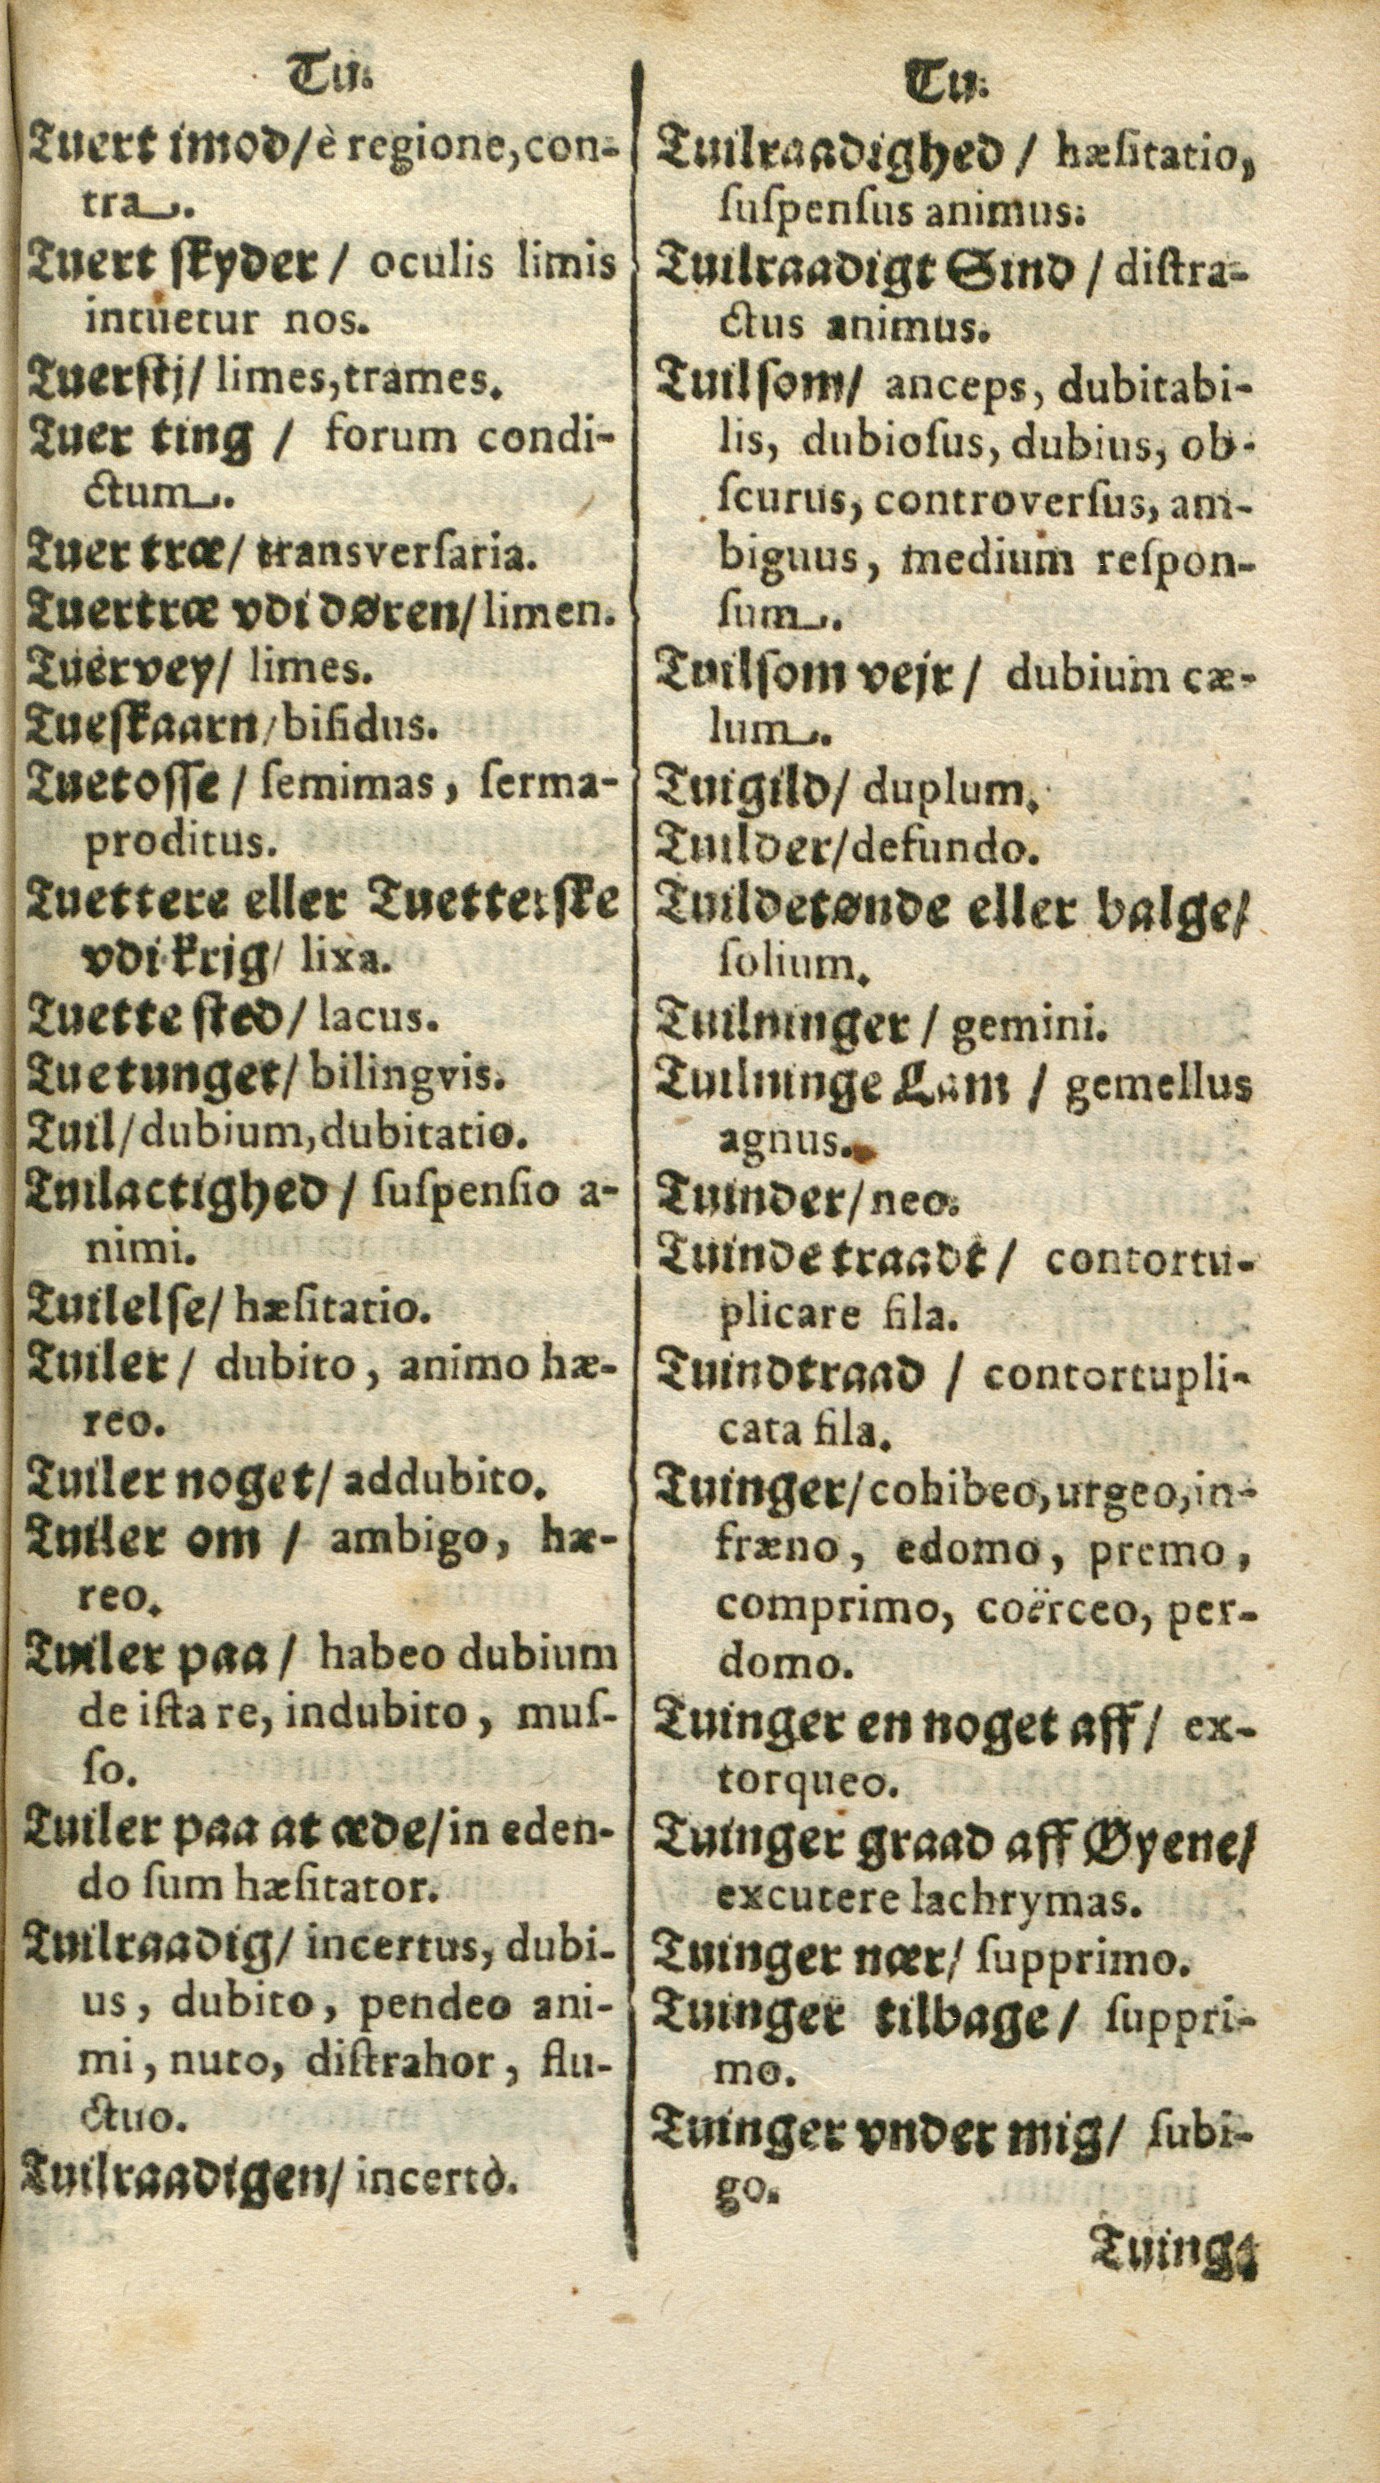 Tu.
Tuert imod/ è regione, con-
tra.
Tuert ſkyder/ oculis limis
intuetur nos.
Tuerſtj/ limes, trames.
Tuer ting / forum condi-
ctum.
Tuer træ/ transverſaria.
Tuertræ vdi døren/ limen.
Tuervey/ limes.
Tueſkaarn/ bifidus.
Tuetoſſe/ ſemimas, ſerma-
proditus.
Tuettere eller Tuetterſke
vdi krig/ lixa.
Tuette ſted/ lacus.
Tuetunget/ bilingvis.
Tuil/ dubium, dubitatio.
Tuilactighed/ ſuſpenſio a-
nimi.
Tuilelſe/ hæſitatio.
Tuiler/ dubito, animo hæ-
reo.
Tuiler noget/ addubito.
Tuiler om / ambigo, hæ-
reo.
Tuiler paa/ habeo dubium
de iſta re, indubito, muſ-
ſo.
Tuiler paa at æde/ in eden-
do ſum hæſitator.
Tuilraadig/ incertus, dubi-
us, dubito, pendeo ani-
mi, nuto, diſtrahor, flu-
ctuo.
Tuilraadigen/ incertò.
Tu.
Tuilraadighed / hæſitatio,
ſuſpenſus animus.
Tuilraadigt Sind / diſtra-
ctus animus.
Tuilſom/ anceps, dubitabi-
lis, dubioſus, dubius, ob-
ſcurus, controverſus, am-
biguus, medium reſpon-
ſum.
Tuilſom vejr/ dubium cæ-
lum.
Tuigild/ duplum.
Tuilder/ defundo.
Tuildetønde eller balge/
ſolium.
Tuilninger / gemini.
Tuilninge Lam / gemellus
agnus.
Tuinder/ neo.
Tuinde traadt/ contortu-
plicare fila.
Tuindtraad / contortupli-
cata fila.
Tuinger/ cohibeo, urgeo, in-
fræno, edomo, premo,
comprimo, coërceo, per-
domo.
Tuinger en noget aff/ ex-
torqueo.
Tuinger graad aff Øyene/
excutere lachrymas.
Tuinger nær/ ſupprimo.
Tuinger tilbage/ ſuppri-
mo.
Tuinger vnder mig/ ſubi-
go.
Tuing.